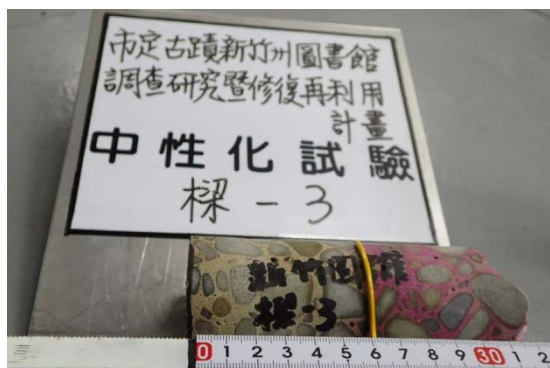 市定古蹟新竹州圖書館
調查研究暨修復再利用
計畫
中性化試驗
樑-3
新竹圖
樑-3
0 1 2 3 4 5 6 7 8 9 30 1 2